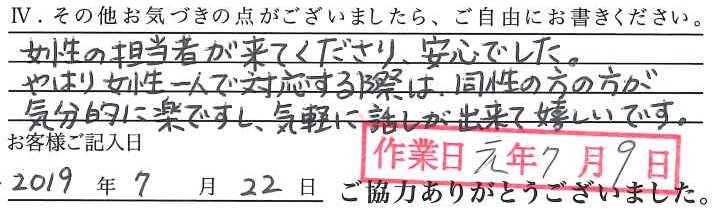 Ⅳ．その他お気づきの点がございましたら、ご自由にお書きください。
女性の担当者が来てくださり、安心でした。
やはり女性一人で対応する際は、同性の方の方が
気分的に楽ですし、気軽に話しが出来て嬉しいです。
お客様ご記入日
作業日 元年7月9日
2019 年 7 月 22 日 ご協力ありがとうございました。